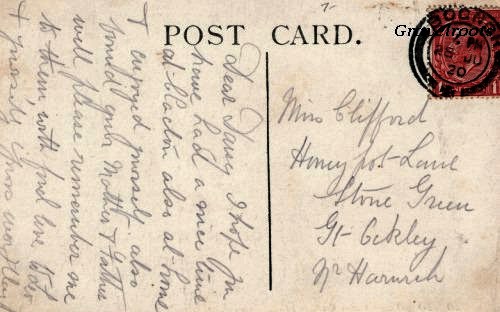 POST CARD.
Dear Daisy I hope you
have had a nice time
at Clacton also at home
I enjoyed myself also
found your Mother & Father
well please remember me
to them, with fond love to Des
& yourself
Miss Clifford
Honeypot-Lane
Stone Green
Gt- Oakley
Nr Harwich
20